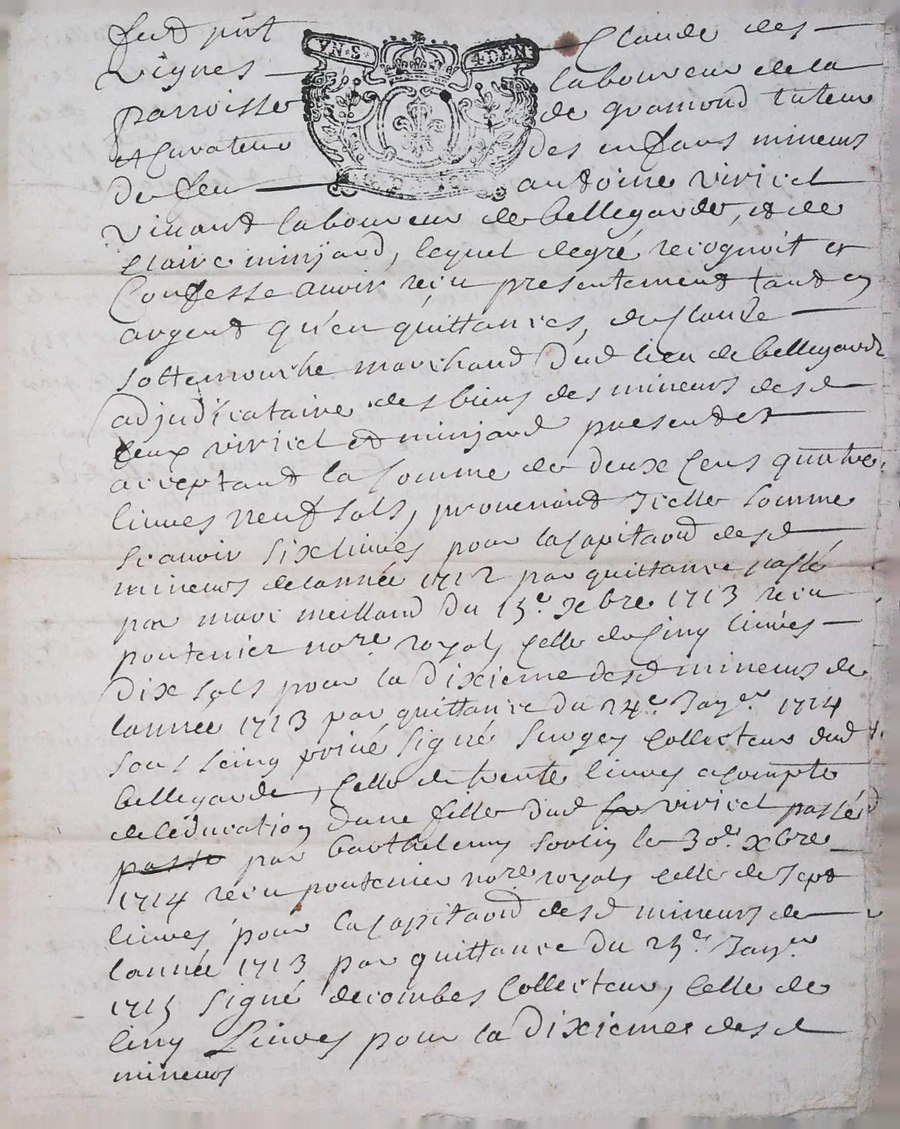 fut pñt Claude des
vignes laboureur de la
parroisse de gramond tuteur
et Curateur des enfans mineurs
de feu antoine viriel
vivant laboureur de bellegarde, et de
Claire minjard, lequel de gré recognoit et
Confesse avoir reçu presentement tant en
argent qu'en quittances, de Claude
sottemouche marchand dud lieu de bellegarde
adjudicataire des biens des mineurs desd
feux viriel et minjard present et
acceptant la somme de deux Cens quatre
livres neuf sols, provenant Icelle somme
scavoir six livres pour la Capitaõn desd
mineurs de lannée 1712 par quittance passé
par marc meilland du 15e. xbre 1713 reçu
pontenier nore. royal, Celle de Cinq livres
dix sols pour la dixieme desd mineurs de
lannée 1713 par quittance du 24e. Janer. 1714
sous seing privé signé Surgey Collecteur dud
bellegarde, Celle de trente livres acompte
de léducation dune fille dud viriel passée
passé par barthelemy le 30e. xbre
1714 reçu pontenier nore. royal, Celle de sept
livres pour la Capitaõn desd mineurs de
lannée 1713 par quittance du 25e. Janer.
1715 signé decombes Collecteur, Celle de
Cinq Livres pour la dixieme desd
mineurs